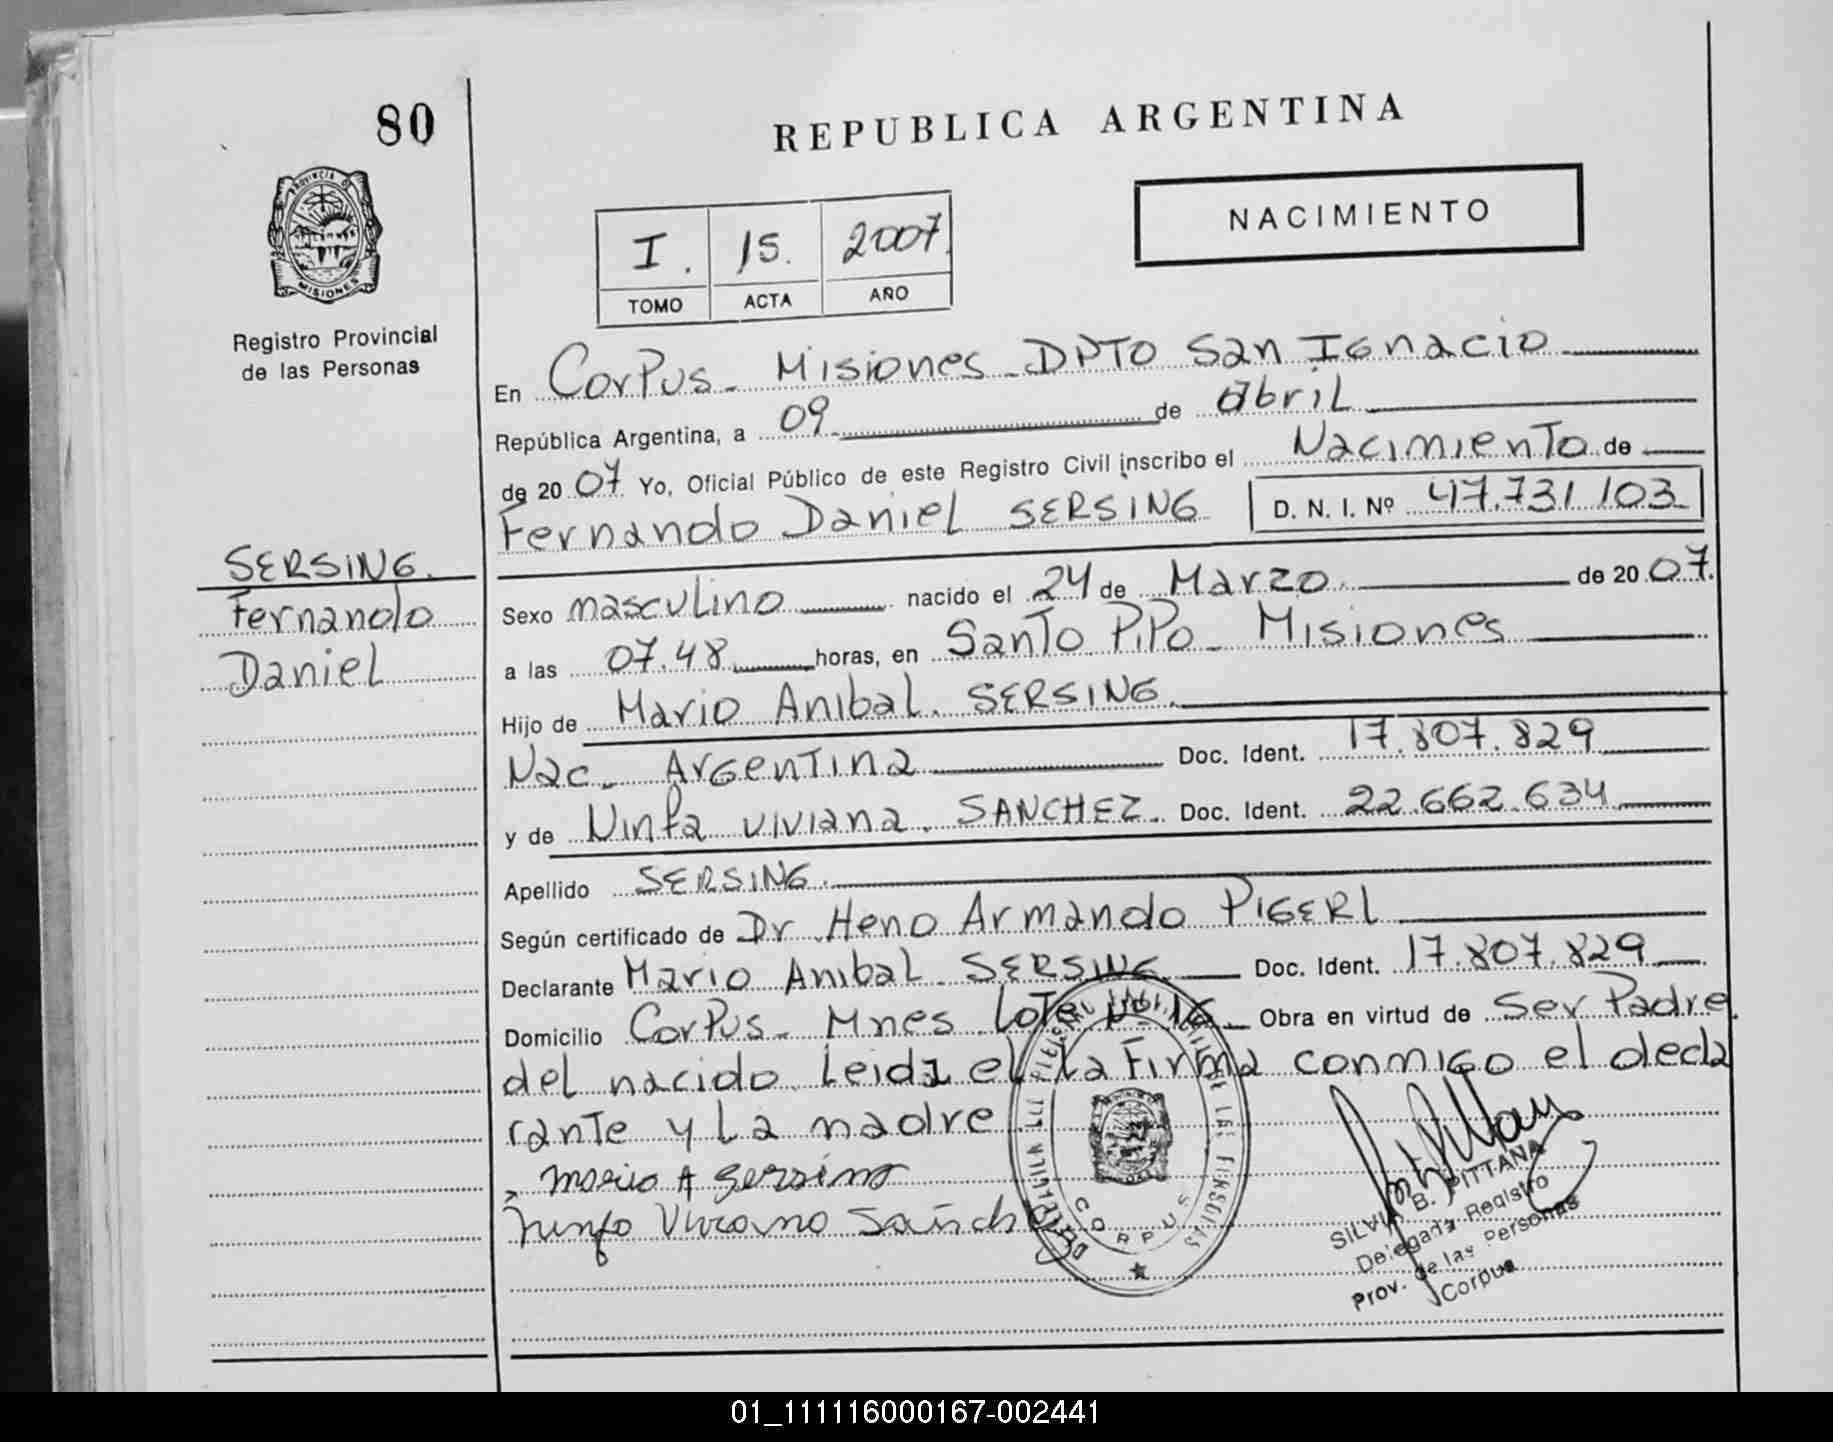 80
REPUBLICA ARGENTINA
NACIMIENTO
PROVINCIA DE
MISIONES
I. 15. 2007
TOMO ACTA AÑO
Registro Provincial
de las Personas
En Corpus - Misiones - DPTO San Ignacio
República Argentina, a 09 de abril
de 20 07 Yo, Oficial Público de este Registro Civil inscribo el Nacimiento de
Fernando Daniel SERSING D. N. I. Nº 47.731.103
SERSING.
Fernando
Daniel
Sexo masculino nacido el 24 de Marzo de 20 07.
a las 07.48 horas, en Santo Pipo - Misiones
Hijo de Mario Anibal. SERSING.
Nac. Argentina Doc. Ident. 17.807.829
y de Ninfa Viviana. SANCHEZ. Doc. Ident. 22.662.634
Apellido SERSING.
Según certificado de Dr. Heno Armando PIGERL
Declarante Mario Anibal SERSING Doc. Ident. 17.807.829
Domicilio Corpus - Mnes Lote Nº 16 Obra en virtud de Ser Padre
del nacido. Leida el la Firma conmigo el decla
rante y La madre
Mario A Sersing
Ninfa Viviana Sánchez
CORPUS
SILVIA B. PITTANA
Delegada Registro
Prov. de las Personas
Corpus
01_111116000167-002441